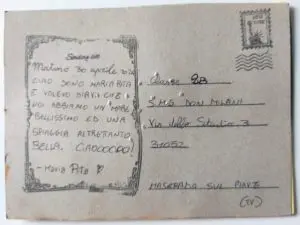 Maturo 30 aprile
CIAO SONO MARIA RITA
E VOLEVO DIRVI CHE
NOI ABBIAMO UN MARE
BELLISSIMO ED UNA
SPIAGGIA ALTRETTANTO
BELLA. CIAOOOOO!
- Maria Rita
Classe 2B
S.M.S. DON MILANI
Via dello Stadio 3
31052
MASERADA SUL PIAVE
(TV)